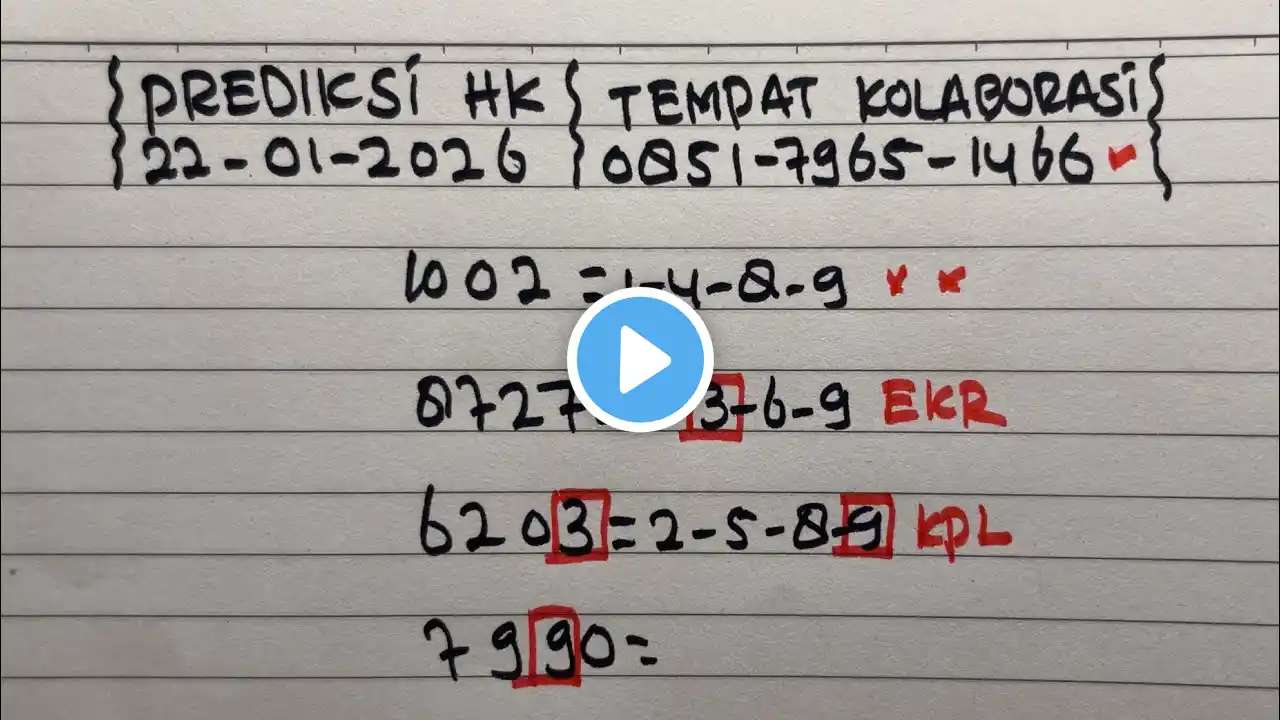 { PREDIKSI HK { TEMPAT KOLABORASI {
22-01-2026 0851-7965-1466
1002 = 1-4-8-9
8727 3-6-9 EKR
6203=2-5-8-9 KPL
7990=